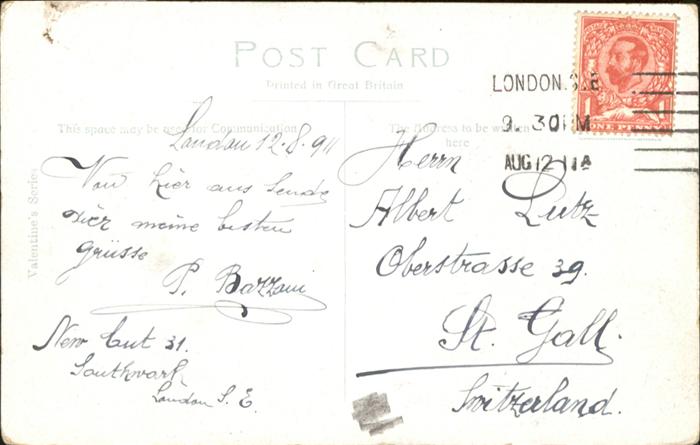 POST CARD
Printed in Great Britain
This space may be used for Communication
The Address to be written
here
Valentine's Series
LONDON. S.E
9. 30 PM
AUG 12 11
ONE PENNY
1 1
London 12.8.911
Von hier aus sende
Dier meine besten
Grüsse
P. Bazzani
New Cut 31.
Southwark
London S. E.
Herrn
Albert Lutz
Oberstrasse 39.
St. Gall.
Switzerland.